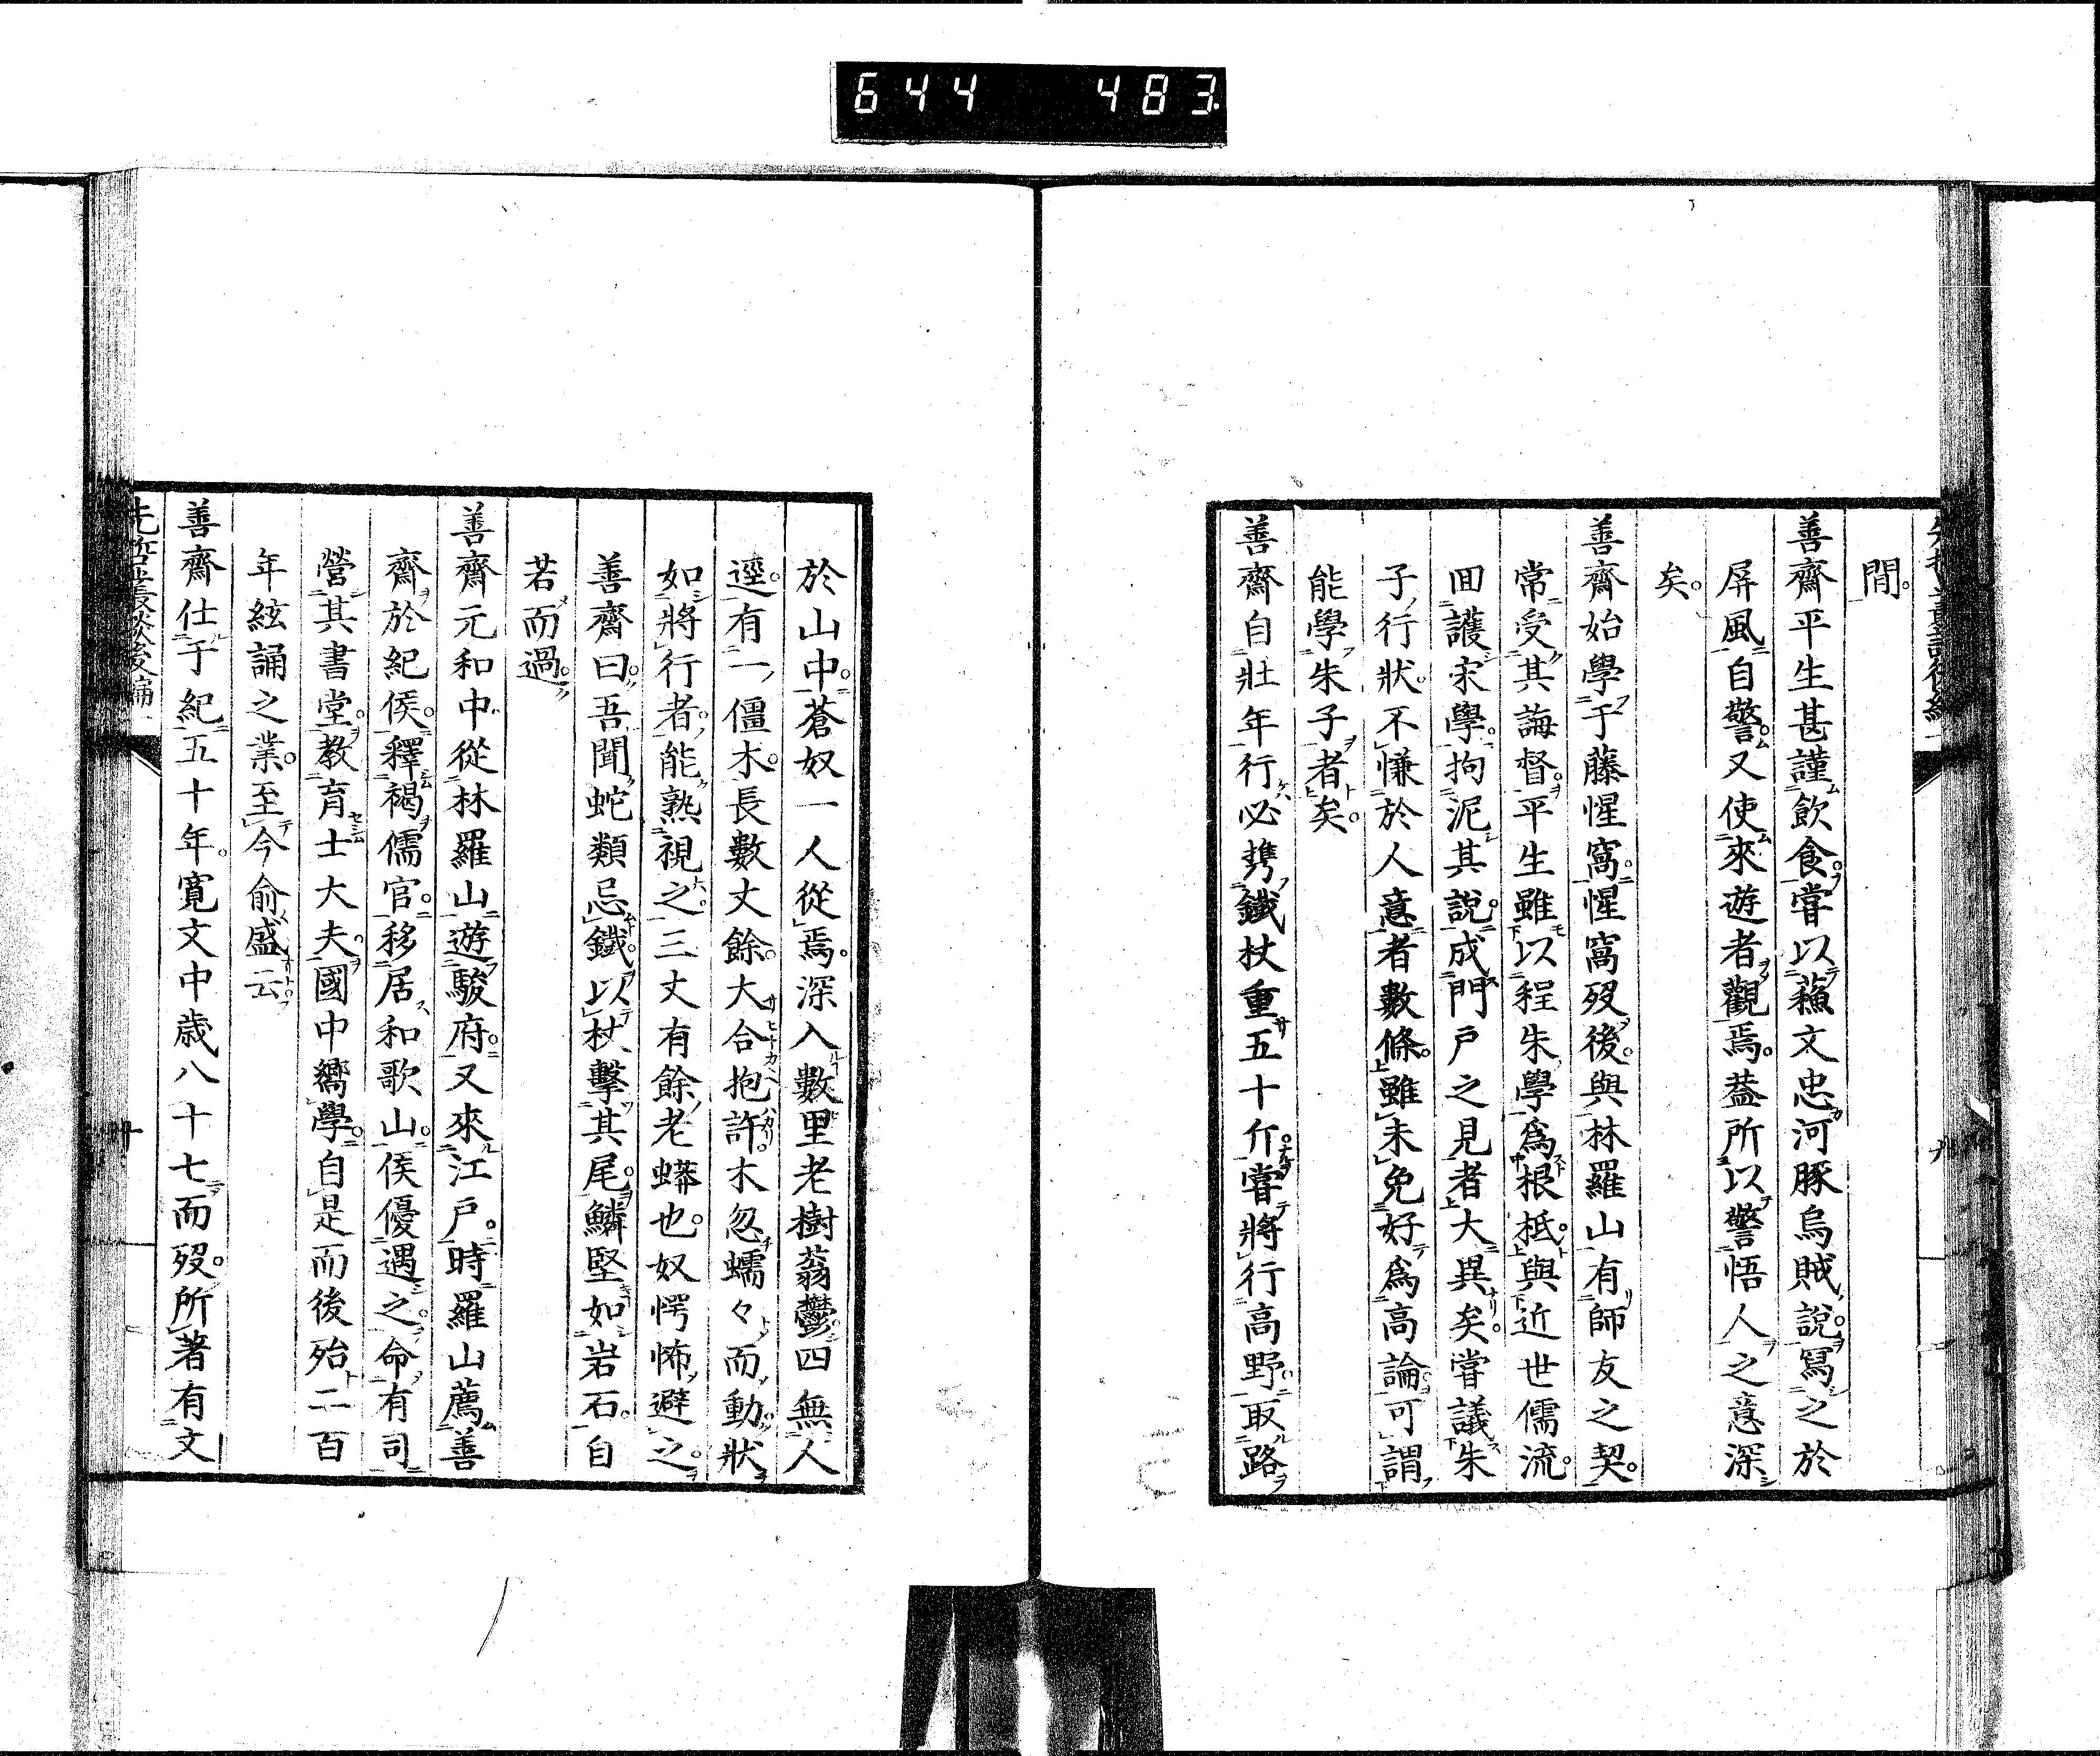 644 483
閒。
善齋平生甚謹飲食。嘗以蘓文忠河豚烏賊説。冩之於
屏風。自警。又使來遊者觀焉。葢所以警悟人之意深
矣。
善齋始學于藤惺窩。惺窩歿後。與林羅山有師友之契。
常受其誨督。平生雖以程朱學爲根柢。與近世儒流。
回護宋學。拘泥其說。成門戸之見者大異矣。嘗議朱
子行狀。不慊於人意者數條。雖未免好爲高論。可謂
能學朱子者矣。
善齋自壯年行必携鐵杖重五十斤。嘗將行高野。取路
於山中。蒼奴一人從焉。深入數里老樹蓊鬱四無人
逕。有一僵木。長數丈餘。大合抱許。木忽蠕々而動。狀
如將行者。能熟視之。三丈有餘老蟒也。奴愕怖避之。
善齋曰。吾聞蛇類忌鐵。以杖擊其尾。鱗堅如岩石。自
若而過。
善齋元和中從林羅山遊駿府。又來江戸。時羅山薦善
齋於紀侯。釋褐儒官。移居和歌山。侯優遇之。命有司
營其書堂。教育士大夫。國中嚮學。自是而後殆二百
年絃誦之業。至今俞盛云。
善齋仕于紀五十年。寛文中歳八十七而歿。所著有文
先哲叢談後編 一